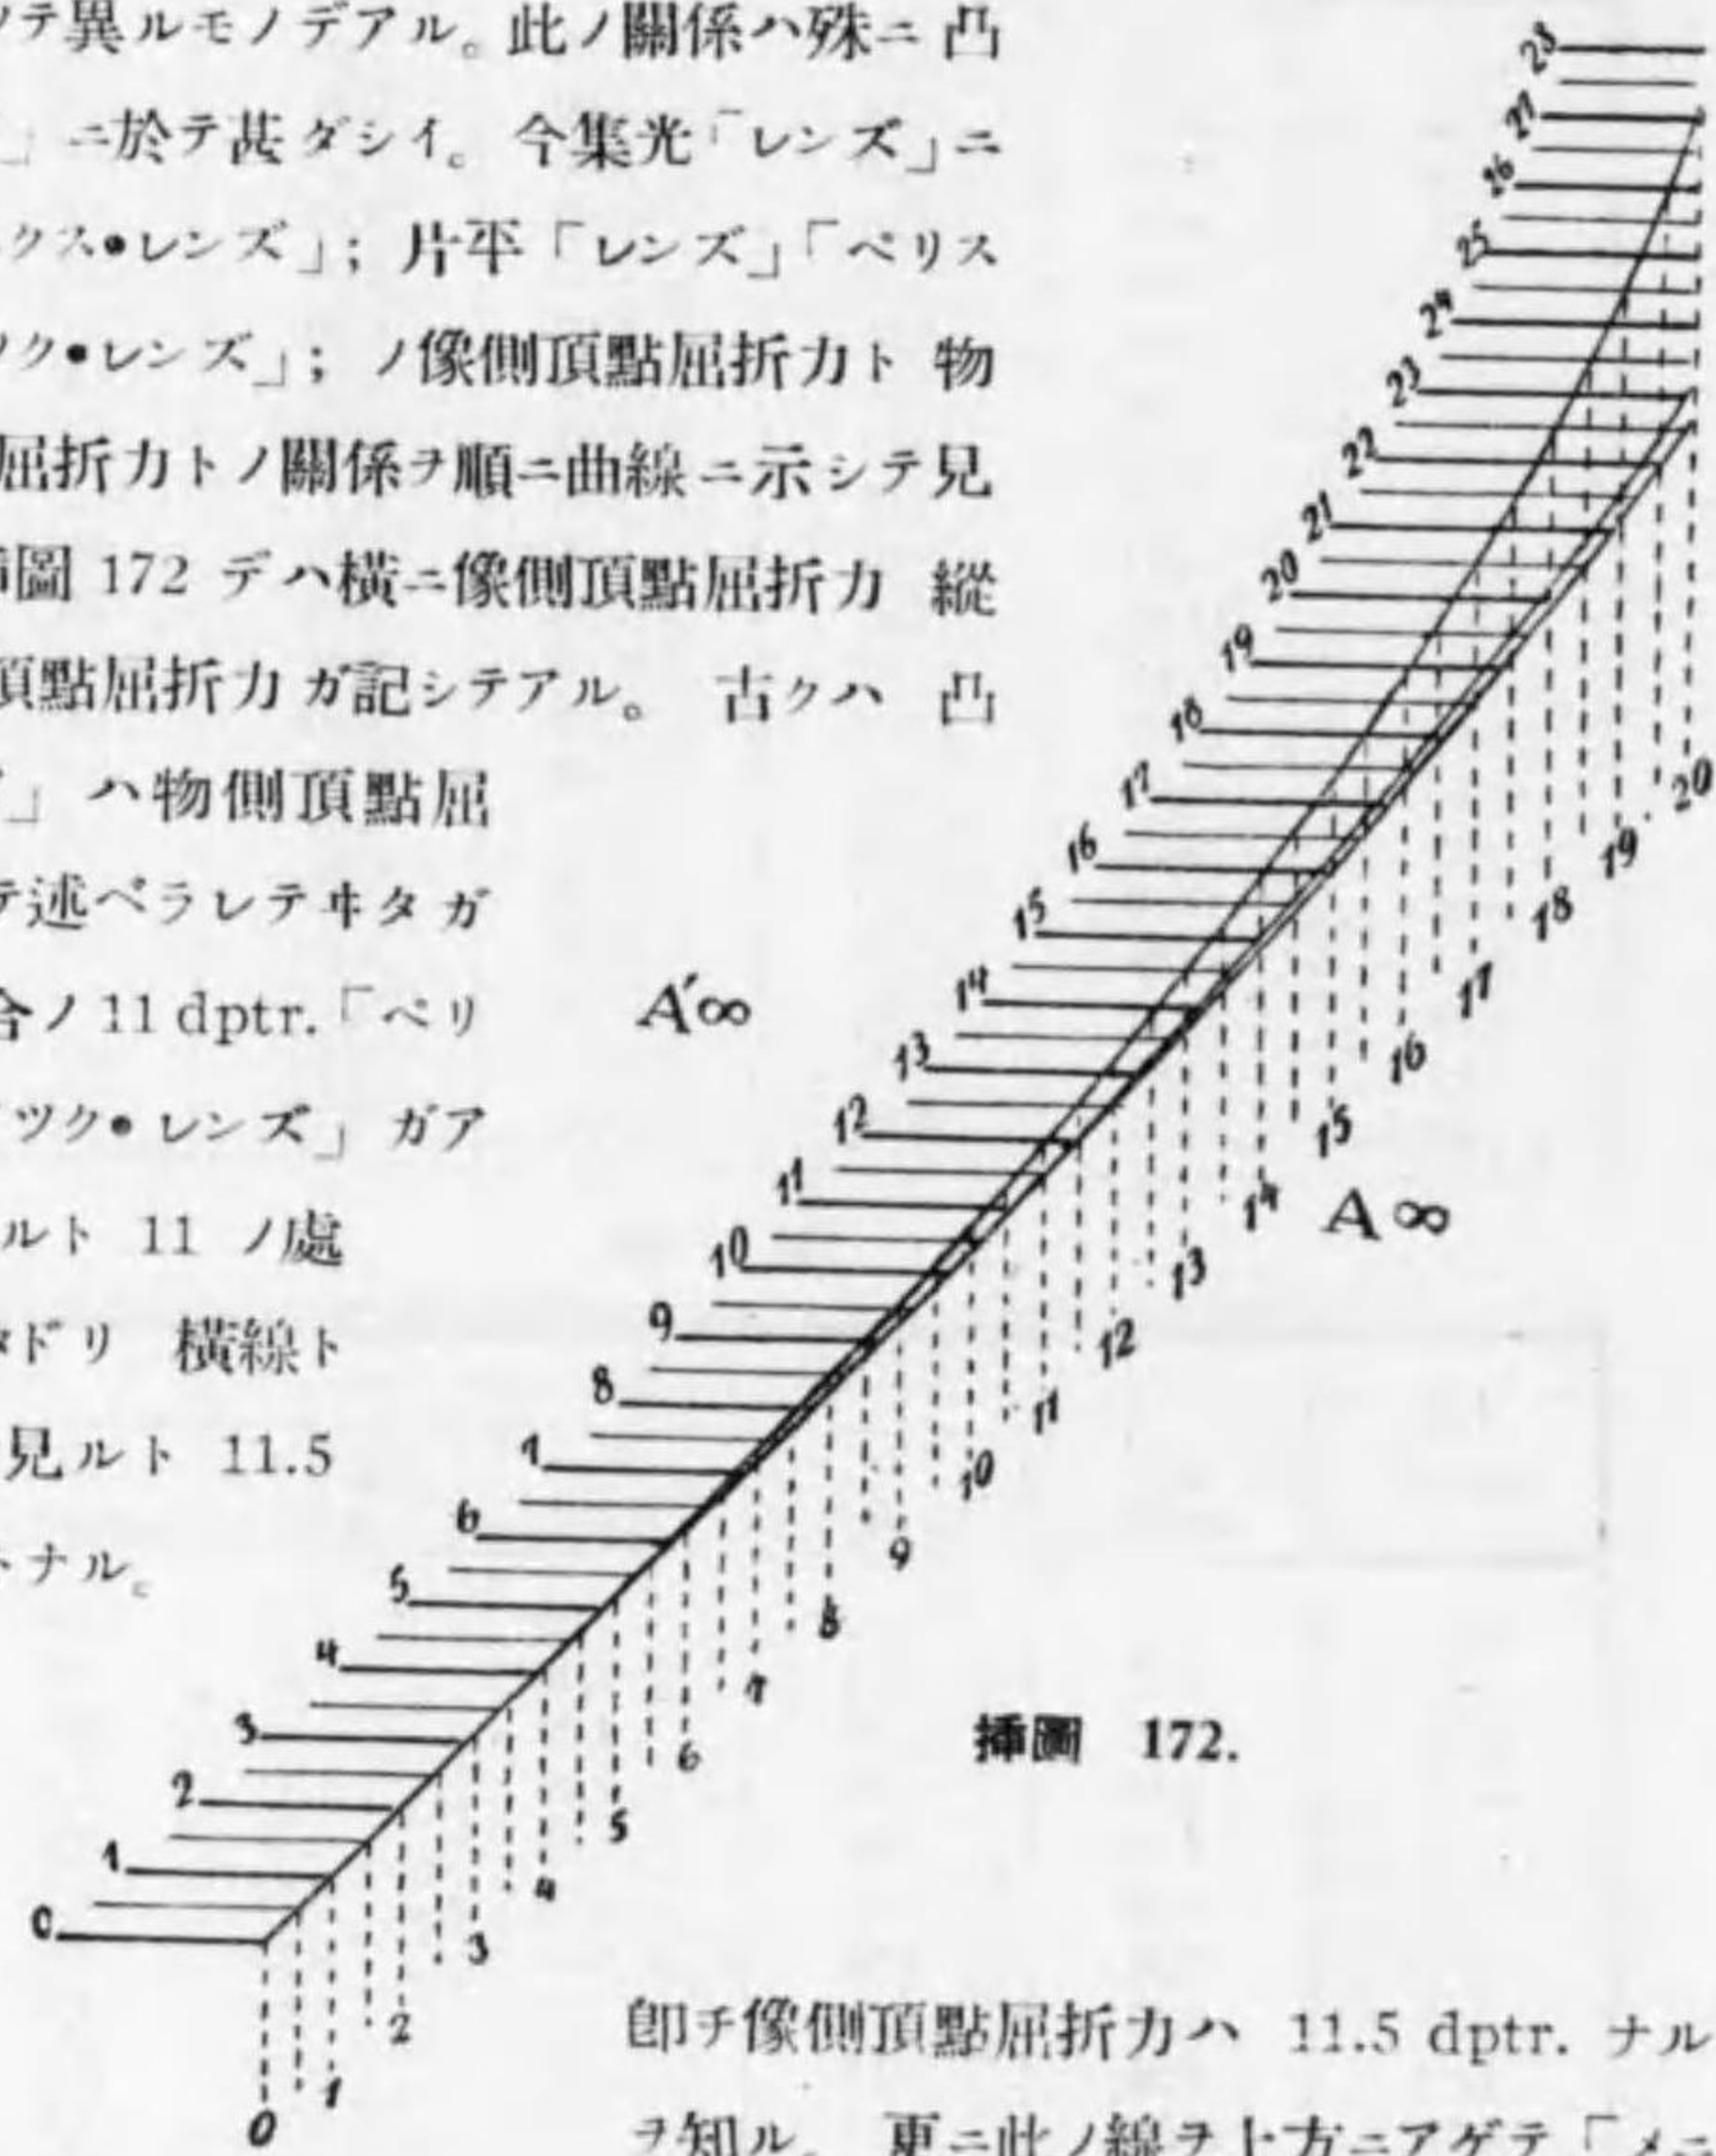 テ異ルモノデアル。此ノ關係ハ殊ニ凸
」ニ於テ甚ダシイ。今集光「レンズ」ニ
クス•レンズ」；片平「レンズ」「ペリス
ク•レンズ」；ノ像側頂點屈折力ト物
屈折力トノ關係ヲ順ニ曲線ニ示シテ見
圖 172 デハ横ニ像側頂點屈折力 縱
頂點屈折力ガ記シテアル。古クハ凸
」ハ物側頂點屈
テ述ベラレテヰタガ
合ノ 11 dptr.「ペリ
ツク•レンズ」ガア
ルト 11 ノ處
ドリ 横線ト
見ルト 11.5
トナル。
28
27
26
25
24
23
22
21
20
19
18
17
16
15
14
13
12
11
10
9
8
7
6
5
4
3
2
1
0
A′∞
0
1
2
3
4
5
6
7
8
9
10
11
12
13
14
15
16
17
18
19
20
A∞
挿圖 172.
卽チ像側頂點屈折力ハ 11.5 dptr. ナル
ヲ知ル。更ニ此ノ線ヲ上方ニアゲテ「メニ